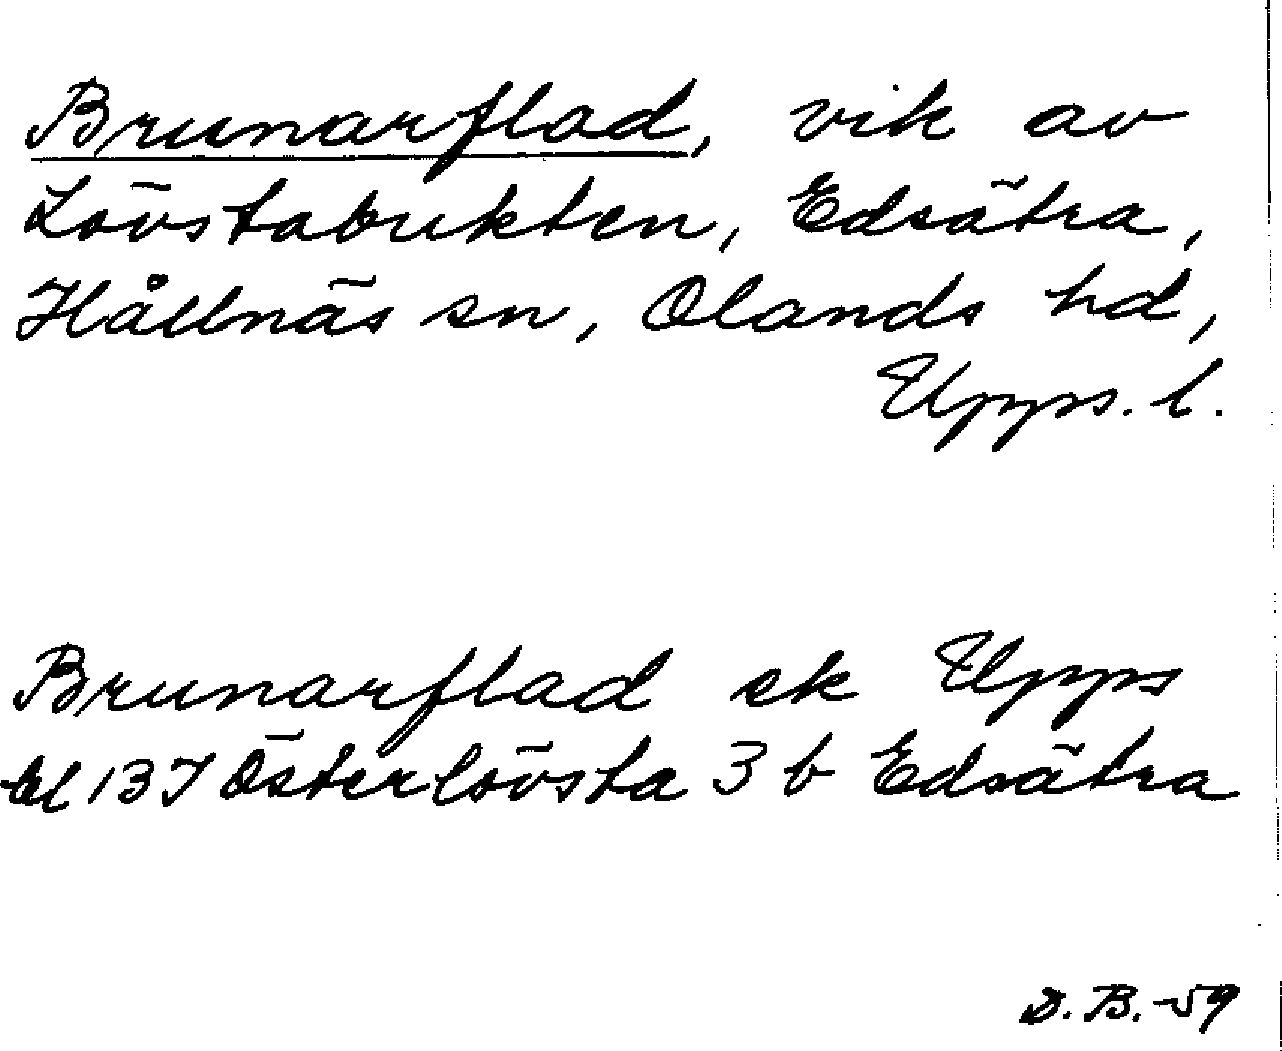 Brunarflad, vik av
Lövstabukten, Edsätra,
Hållnäs sn, Olands hd,
Upps. l.
Brunarflad ek Upps
bl 137 Österlövsta 3 b Edsätra
D. B. -59